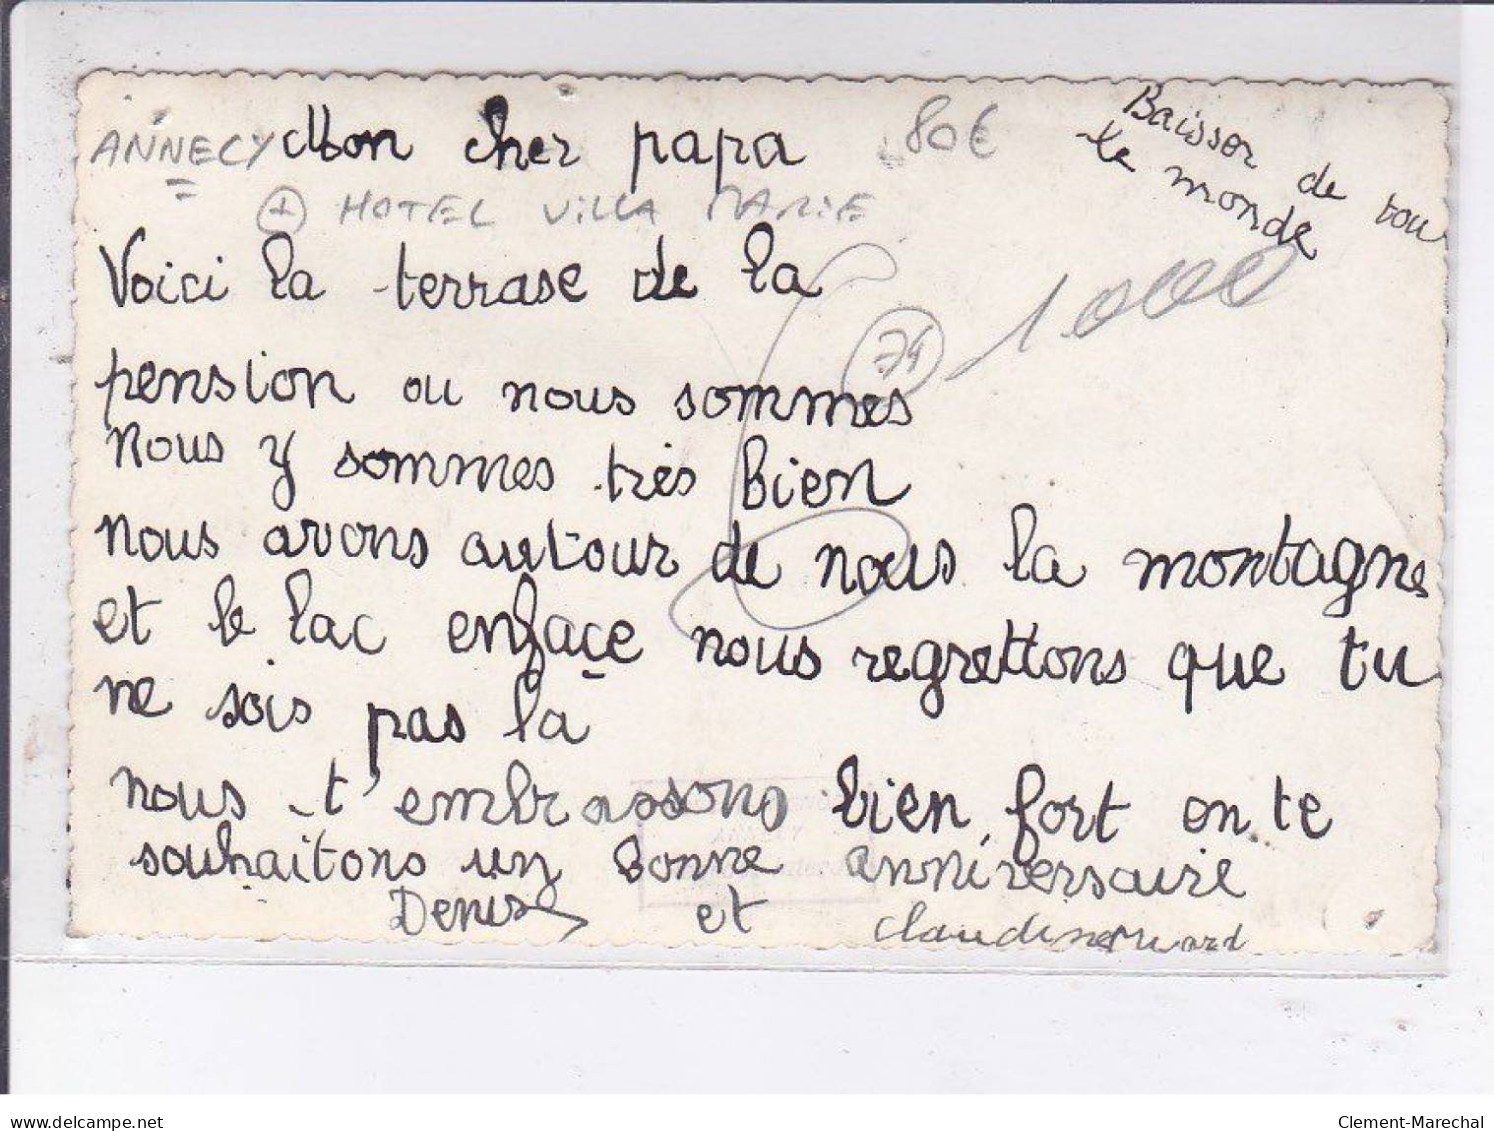 ANNECY Mon cher papa 80€
+ HOTEL VILLA MARIE
Baisser de tou
le monde
Voici la terrase de la
74 1000
pension ou nous sommes
Nous y sommes très bien
nous avons autour de nous la montagne
et le lac enfaçe nous regrettons que tu
ne sois pas là
nous t'embrassons bien fort on te
souhaitons un Bonne anniversaire
Denise et Claudine
delcampe.net
Clement-Marechal